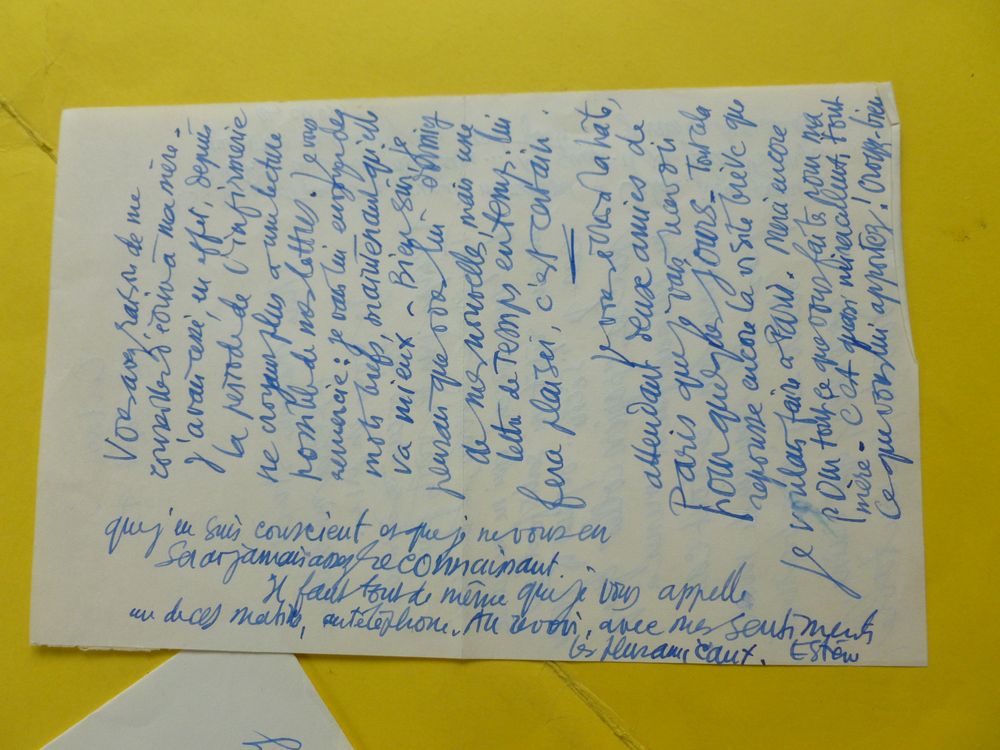 Vous avez raison de me
conseiller d'écrire à ma mère -
j'avais cessé, en effet, depuis
la période de l'infirmerie
ne croyant plus à une lecture
possible de nos lettres. Je vous
remercie : je vais lui envoyer des
mots brefs, maintenant qu'elle
va mieux - Bien sûr, je
pensais que vous lui donniez
de mes nouvelles, mais une
lettre de temps en temps lui
fera plaisir, c'est certain.
Je vous écris à la hâte,
attendant deux amies de
Paris que je vais revoir
pour quelques jours - Tout cela
repousse encore la visite brève que
je voulais faire à Merci encore
pour tout ce que vous faites pour ma
mère - C'est quasi miraculeux, tout
ce que vous lui apportez ! Croyez bien
que j'en suis conscient et que je ne vous en
serai jamais assez reconnaissant.
Il faut tout de même que je vous appelle
un de ces matins, au téléphone. Au revoir, avec mes sentiments
les plus amicaux.